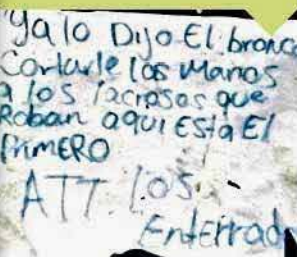 Ya lo Dijo El bronco
Cortarle los Manos
a los raciosos que
Roban aqui Esta El
PrimERO
ATT. Los
Enterrad